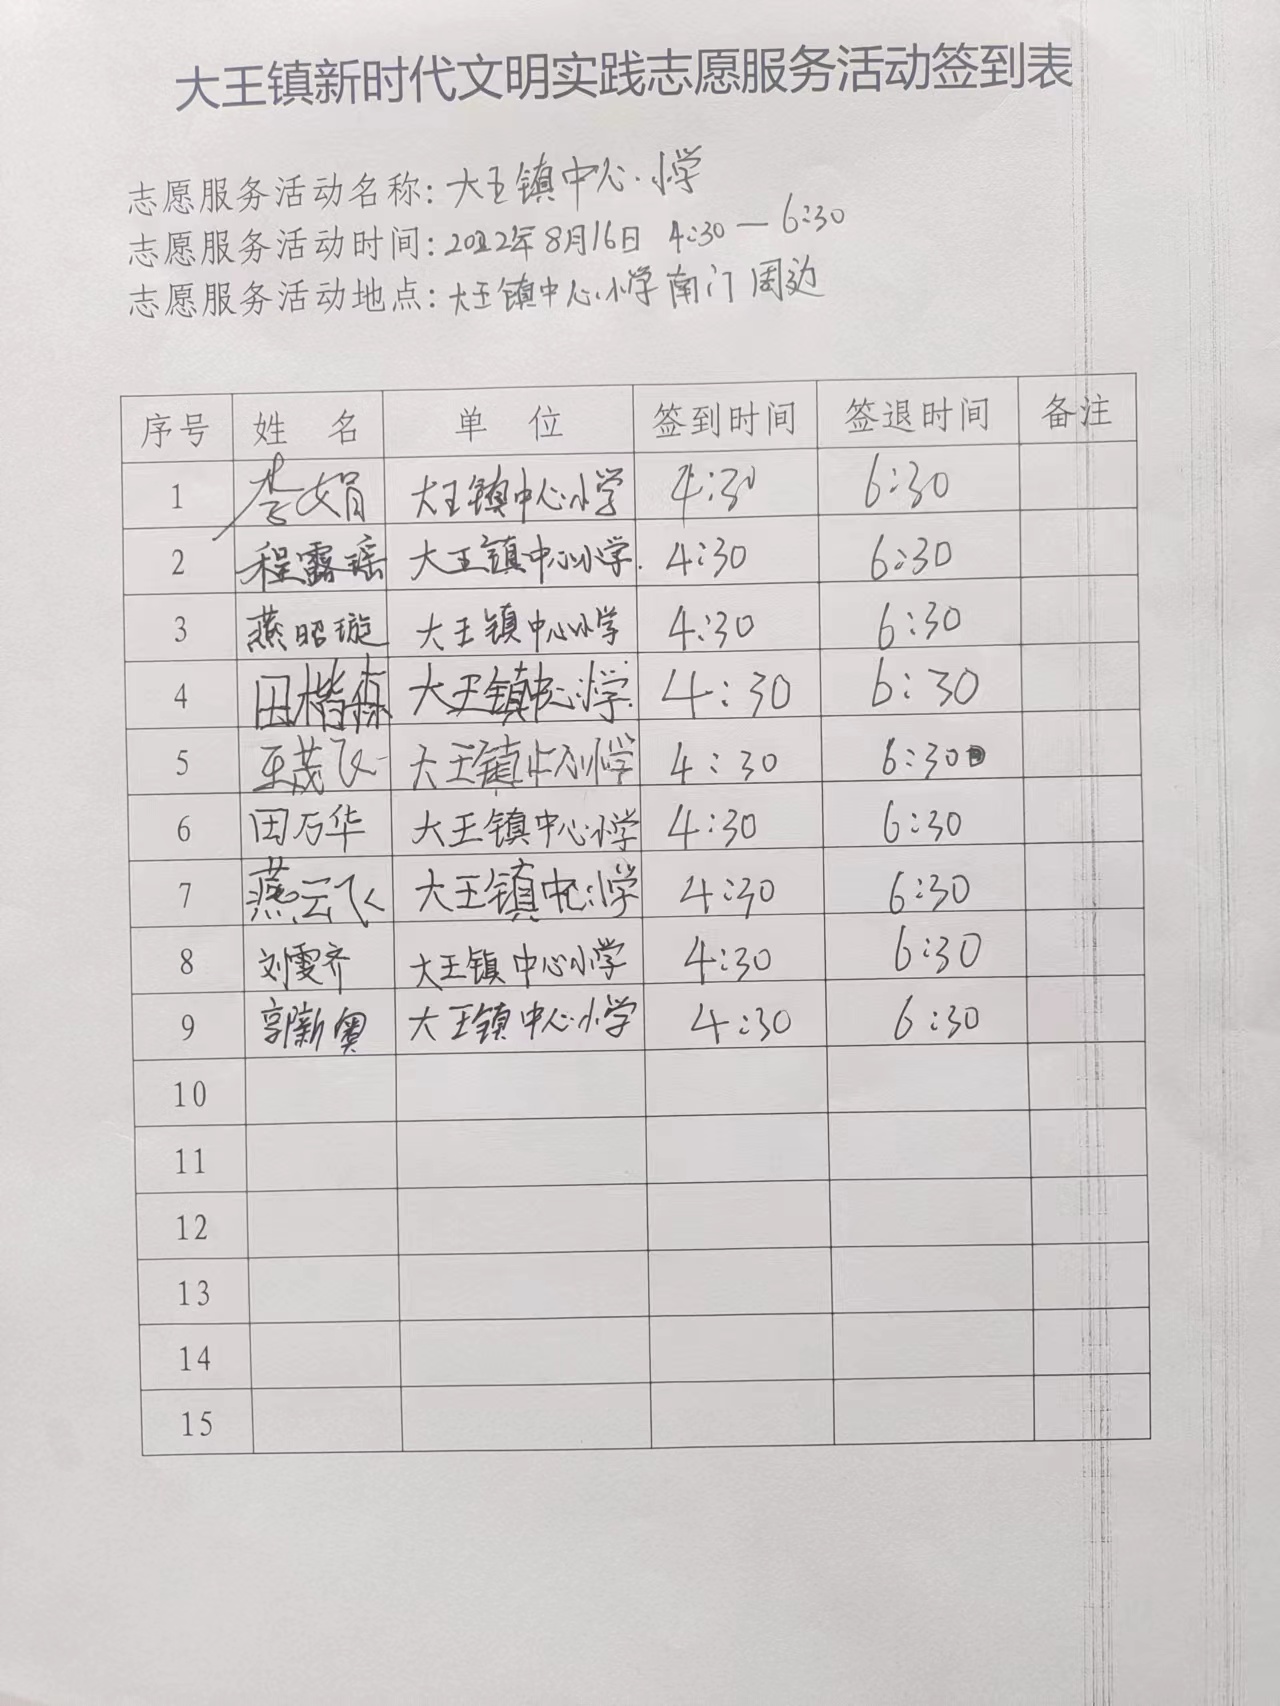 大王镇新时代文明实践志愿服务活动签到表
志愿服务活动名称:大王镇中心小学
志愿服务活动时间:2022年8月16日 4:30—6:30
志愿服务活动地点:大王镇中心小学南门周边
序号 姓 名 单 位 签到时间 签退时间 备注
1 李娟 大王镇中心小学 4:30 6:30
2 程露瑶 大王镇中心小学 4:30 6:30
3 燕昭璇 大王镇中心小学 4:30 6:30
4 田楷森 大王镇中心小学 4:30 6:30
5 王茂飞 大王镇中心小学 4:30 6:30
6 田万华 大王镇中心小学 4:30 6:30
7 燕云飞 大王镇中心小学 4:30 6:30
8 刘雯齐 大王镇中心小学 4:30 6:30
9 郭新奥 大王镇中心小学 4:30 6:30
10
11
12
13
14
15